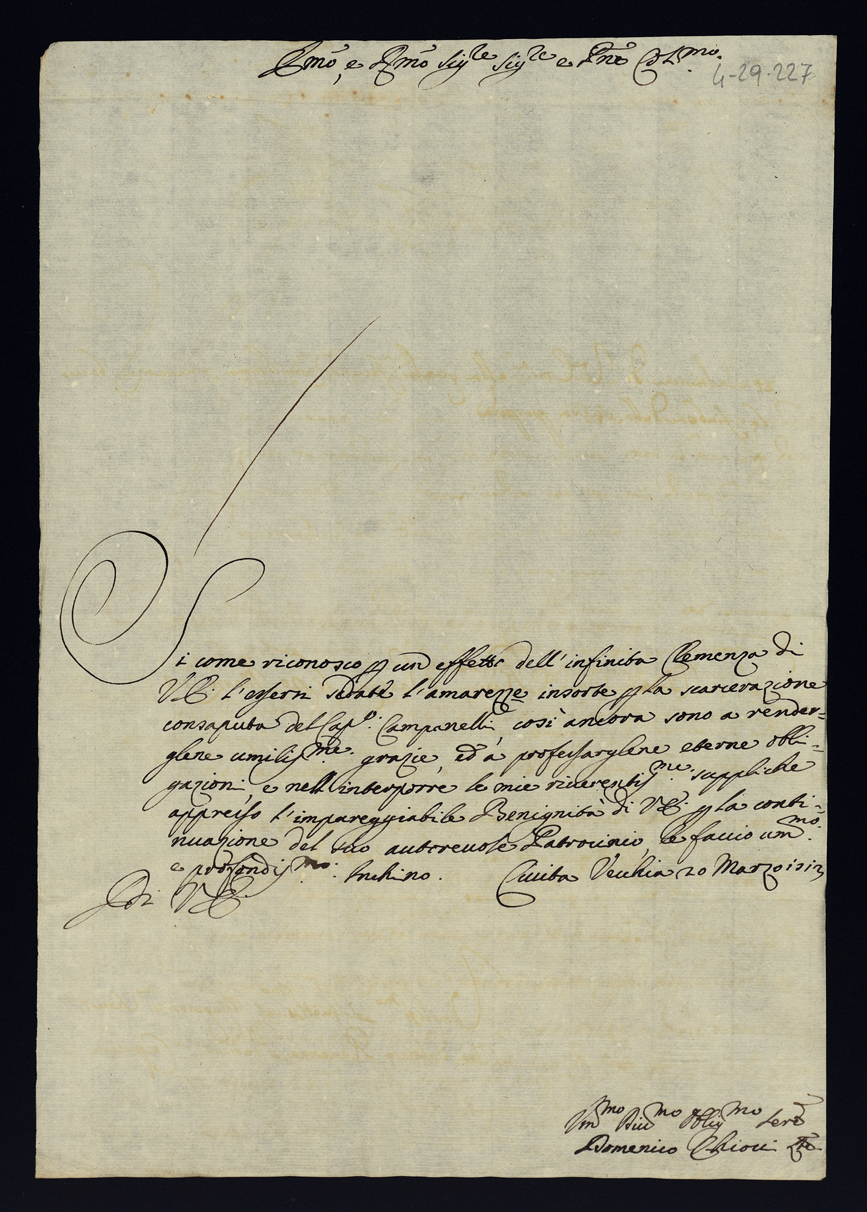 Em̃o, e Rmo͂ Sig.re Sig.re e Pn̄e Col.mo
4-29-227
Si come riconosco p un effetto dell'infinita Clemenza di
V.E. l'essersi sedate l'amarezze insorte p la scarcerazione
consaputa del Cap.o Campanelli, così ancora sono a render-
glene umiliss.me grazie, ed à professargliene eterne obli-
gazioni, e nell'interporre le mie riverentiss.me suppliche
appresso l'impareggiabile Benignità di V.E. p la conti-
nuazione del suo autorevole Patrocinio, le faccio um.mo
e profondiss.mo Inchino. Civita Vecchia 20 Marzo
Di V.E.
Um.mo Div.mo Oblig.mo Ser.e
Domenico Chiocci